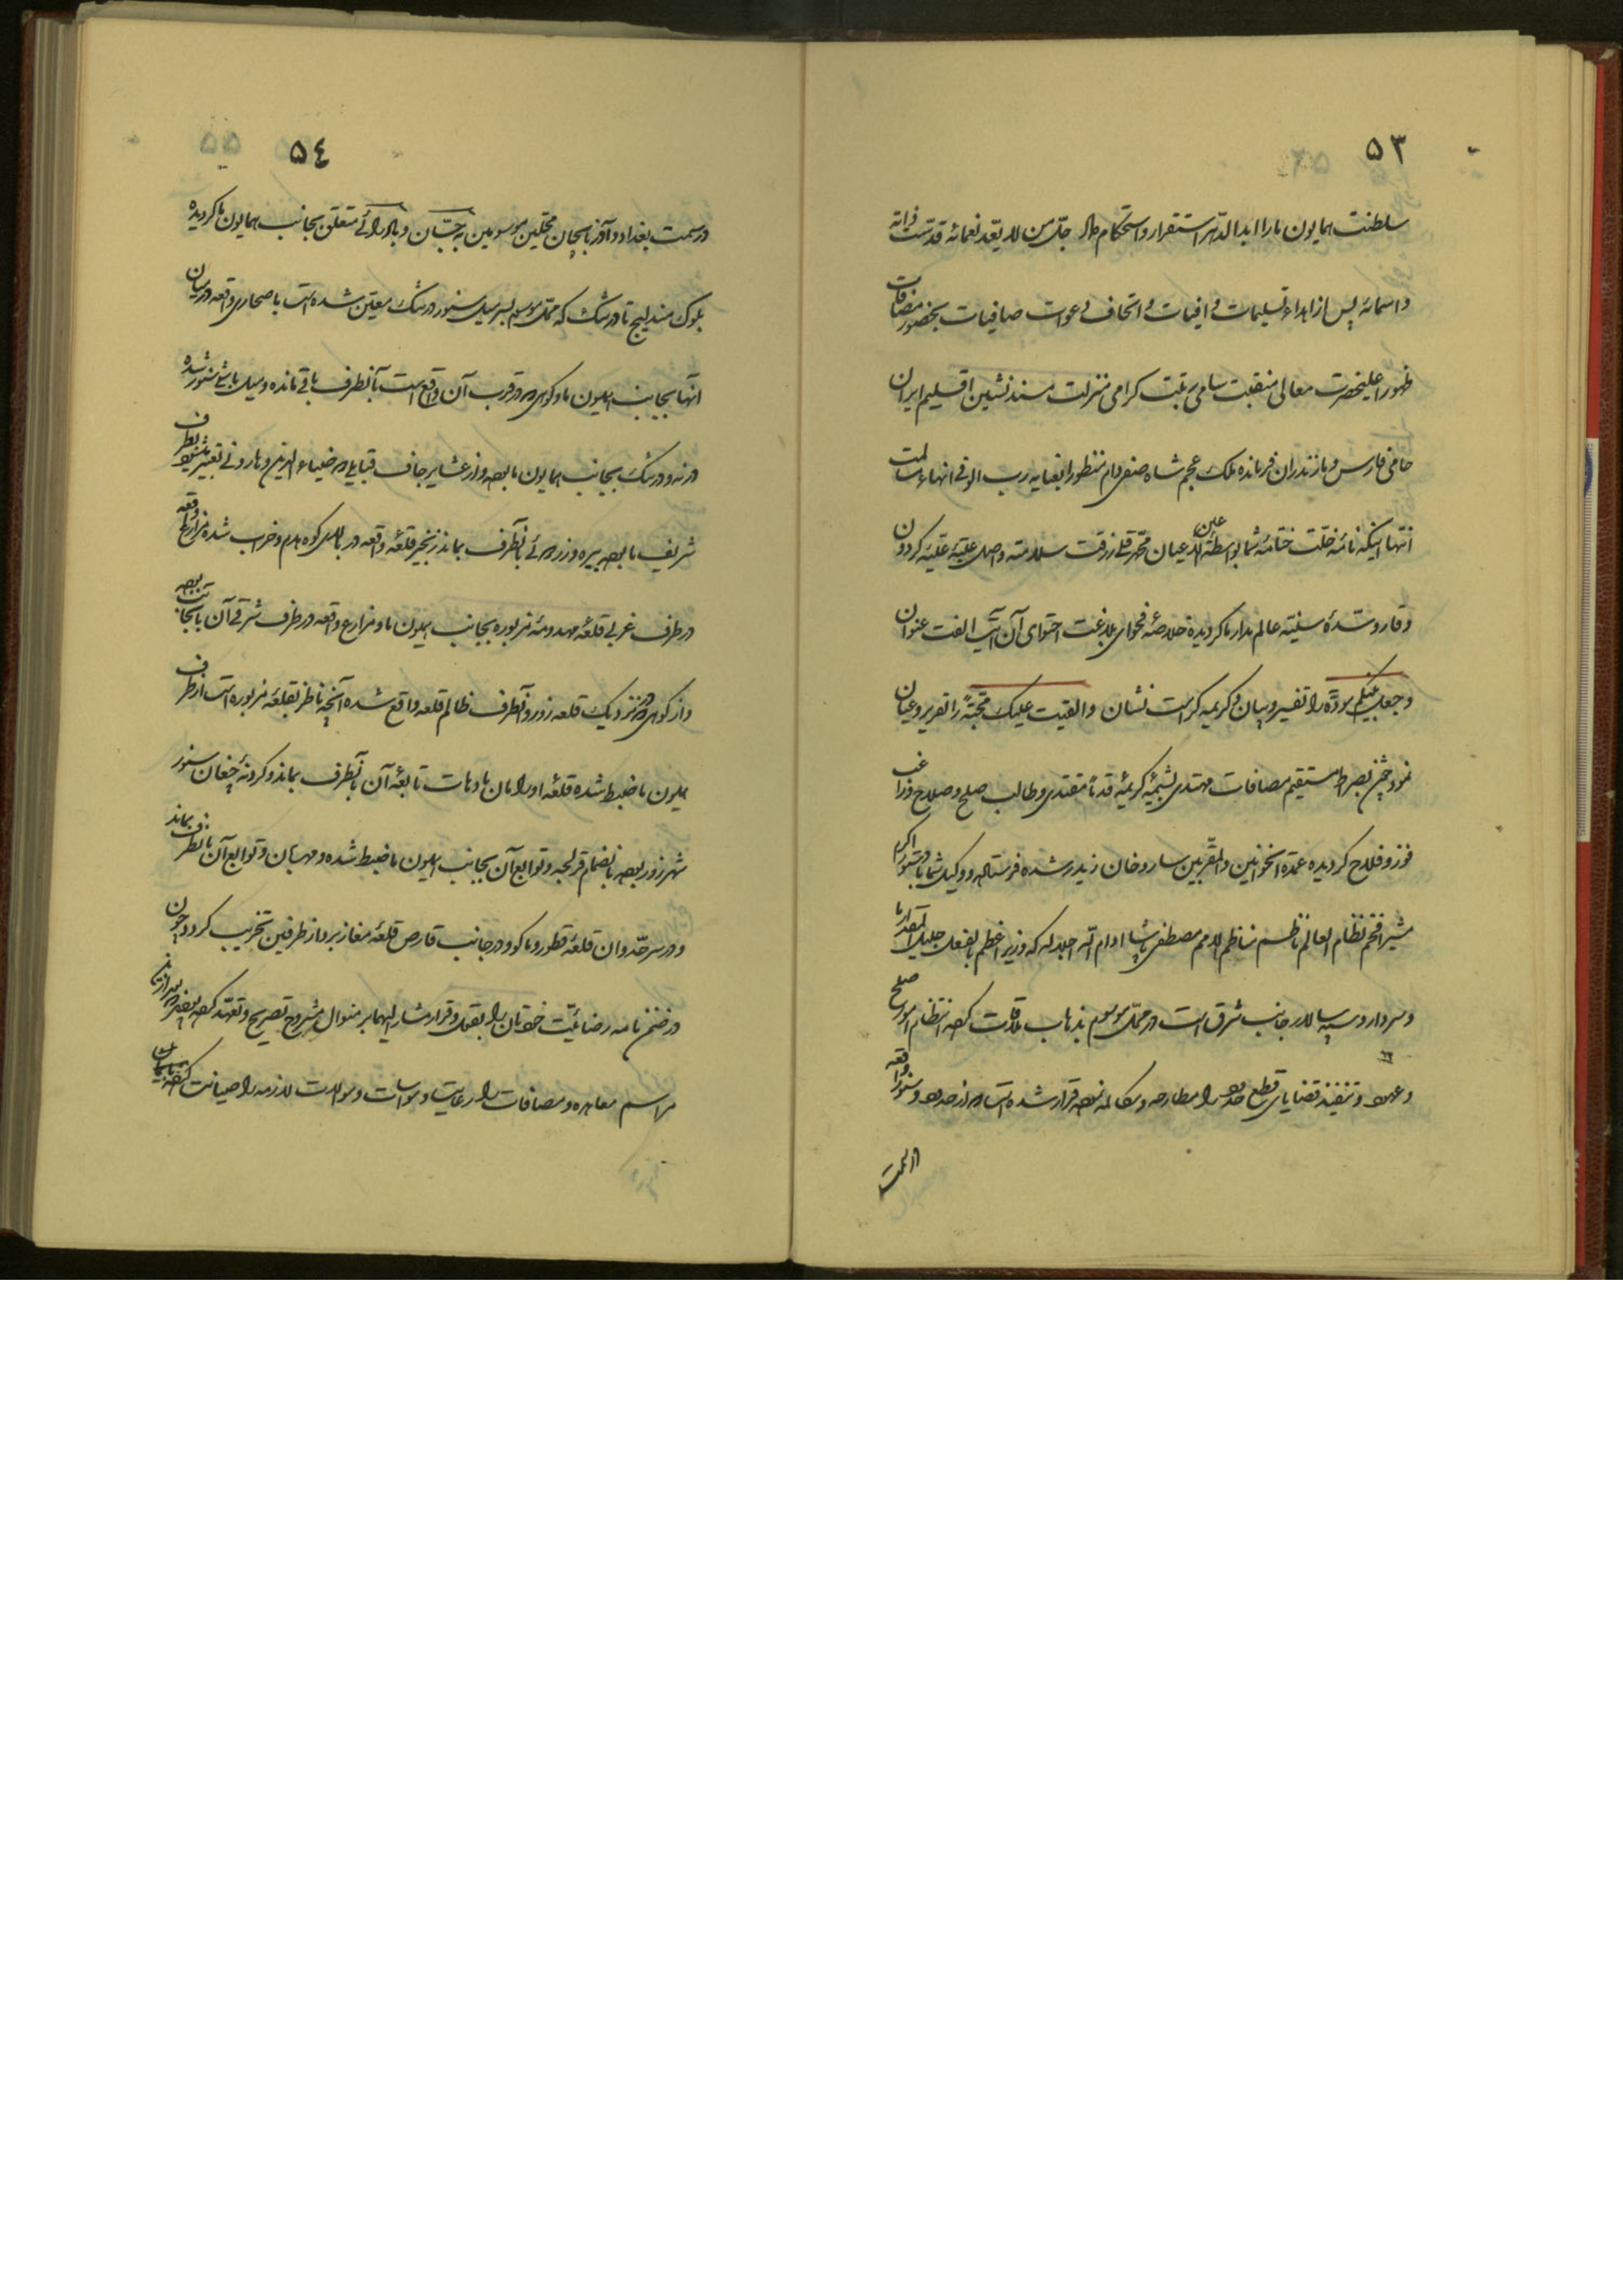 ۵۳
سلطنت همایون ما را ابد الدهر استقرار و استحکام داد جل من لا یعد نعمائه قدست ذاته
و اسمائه پس از اهداء تسلیمات وافیات و اتحاف دعوات صافیات بحضور مصافات
ظهور اعلیحضرت معالی منقبت سامی مرتبت گرامی منزلت مسند نشین اقلیم ایران
حامی فارس و مازندران فرمانده ملک عجم شاه صفی دام منظورا بعنایه رب الوفی انهاء سالمت
انتها اینکه نامهٔ خلت ختامهٔ شما بواسطهٔ عین الاعیان محمد قلی زرقت سلامته واصل عتبهٔ علیهٔ گردون
وقار و سدهٔ سنیهٔ عالم مدار ما گردیده خلاصهٔ فحوای بلاغت احتوای آن آیت الفت عنوان
وجعل بینکم مودة را تفسیر و بیان و کریمه کرامت نشان والقیت علیک محبة را تقریر و عیان
نمود چون بصراط مستقیم مصافات مهتدی بشیمهٔ کریمهٔ قدما مقتدی و طالب صلح و صلاح و راغب
فوز و فلاح گردیده عمدة الخوانین والمقربین ساروخان زید رشده فرستاده و وکیل شما با دستور اکرم
مشیر افخم نظام العالم ناظم مناظم الامم مصطفی پاشا ادام الله اجلاله که وزیر اعظم بالفعل جلیل المقدار ما
و سردار و سپه سالار جانب شرق است در محل موسوم بذهاب ملاقات کرده انتظام امور صلح
و عهود و تنفیذ قضایای قطع حدود را مطارحه و مکالمه نموده قرار شده است که از حدود و سنور واقعه
در سمت
۵٤
در سمت بغداد و آذربایجان محلین موسومین به جسان و بادرائی متعلق بجانب همایون ما گردیده
بلوک مندلیج تا درتنک که محل موسوم بسرمیل سنور درتنک معین شده است با صحاری واقعه در میان
آنها بجانب همایون ما و کوهی که در قرب آن واقع است بآنطرف باقی مانده و میل باشی سنور شده
درنه و درتنک بجانب همایون ما بوده و از عشایر جاف قبایلی که ضیاء الدین و هارونی تعبیر میشود بطرف
شریف ما بوده بیره و زردوئی بآنطرف بماند زنجیر قلعهٔ واقعه در بالای کوه هدم و خراب شده مزارع واقعه
در طرف غربی قلعهٔ مهدومهٔ مزبوره بجانب همایون ما و مزارع واقعه در طرف شرقی آن بآنجانب بوده
و از کوهی که در نزدیک قلعه زور و آنطرف ظالم قلعه واقع شده آنچه ناظر بقلعهٔ مزبوره است از طرف
همایون ما ضبط شده قلعهٔ اورامان با دهات تابعهٔ آن بآنطرف بماند و گردنهٔ چغان سنور
شهرزور بوده بانضمام قزلجه و توابع آن بجانب همایون ما ضبط شده و مهربان و توابع آن بآنطرف بماند
و در سرحد وان قلعهٔ قطور و ماکو و در جانب قارص قلعهٔ مغازبرد از طرفین تخریب گردد چون
در ضمن نامه رضائیت خودتان را بقول و قرار مشار الیهما بر منوال مشروح تصریح و تعهد کرده بودید
مراسم معاهده و مصافات را رعایت و مواسات و موالات لازمه را صیانت کرده